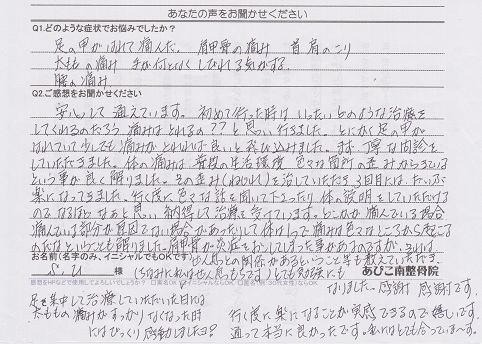 あなたの声をお聞かせください
Q1.どのような症状でお悩みでしたか？
足の甲がはれて痛んだ。肩甲骨の痛み 首肩のこり
太ももの痛み 手が何となくしびれる気がする。
腰の痛み
Q2.ご感想をお聞かせください
安心して通えています。初めて行った時はいったいどのような治療を
してくれるのだろう痛みはとれるの??と思い行きました。とにかく足の甲が
はれていて少しでも痛みがとれれば良いと飛び込みました。まず、丁寧な問診を
していただきました。体の痛みは普段の生活環境 色々な箇所の歪みからきている
という事が良く解りました。その歪み(ねじれ)を治していただき3回目には、だいぶ
楽になってきました。行く度に色々な話を聞いて下さったり体の説明をしていただける
のでなるほどなぁと思い納得して治療を受けています。どこかが痛んでいる場合
痛んでいる部分が原因でない場合があったりして体って痛みは色々なところから起こるも
のだなということも解りました。肩甲骨が炎症をおこしてしまった事があるのですが、それは
ぜん息との関係があるという事も教えていただき、
お名前(名字のみ、イニシャルでもOKです)
S.U 様
(ちなみに私はぜん息もちです)とても勉強にも
なりました。感謝 感謝です。
あびこ南整骨院
足を集中して治療していただいた日には
太ももの痛みがすっかりなくなった時
にはびっくり感動しましたヨ?
行く度に楽になることが実感できるので嬉しいです。
通って本当に良かったです。私にはとても合っていま〜す。